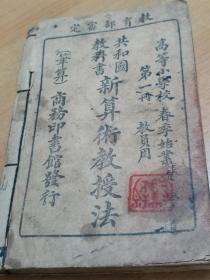 教育部審定
高等小學校 春季始業
第一册 教員用
共和國
教科書
新算術教授法
筆算
商務印書館發行